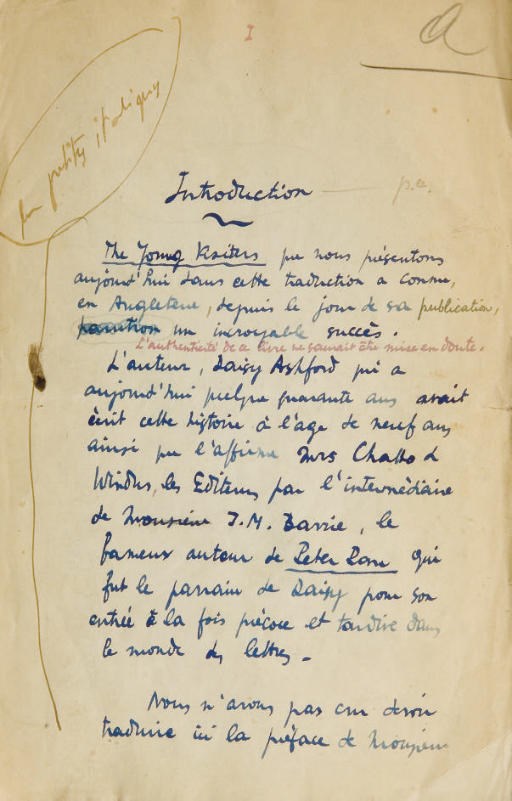 I
a
en petites italiques
Introduction
p.a.
The Young Visiters que nous présentons
aujourd'hui dans cette traduction a connu,
en Angleterre, depuis le jour de sa publication,
parution un incroyable succès.
L'authenticité de ce livre ne saurait être mise en doute.
L'auteur, Daisy Ashford qui a
aujourd'hui quelque quarante ans avait
écrit cette histoire à l'age de neuf ans
ainsi que l'affirme Mrs Chatto &
Windus, les Editeurs par l'intermédiaire
de Monsieur J.M. Barrie, le
fameux auteur de Peter Pan qui
fut le parrain de Daisy pour son
entrée à la fois précoce et tardive dans
le monde des lettres.
Nous n'avons pas cru devoir
traduire ici la préface de Monsieur